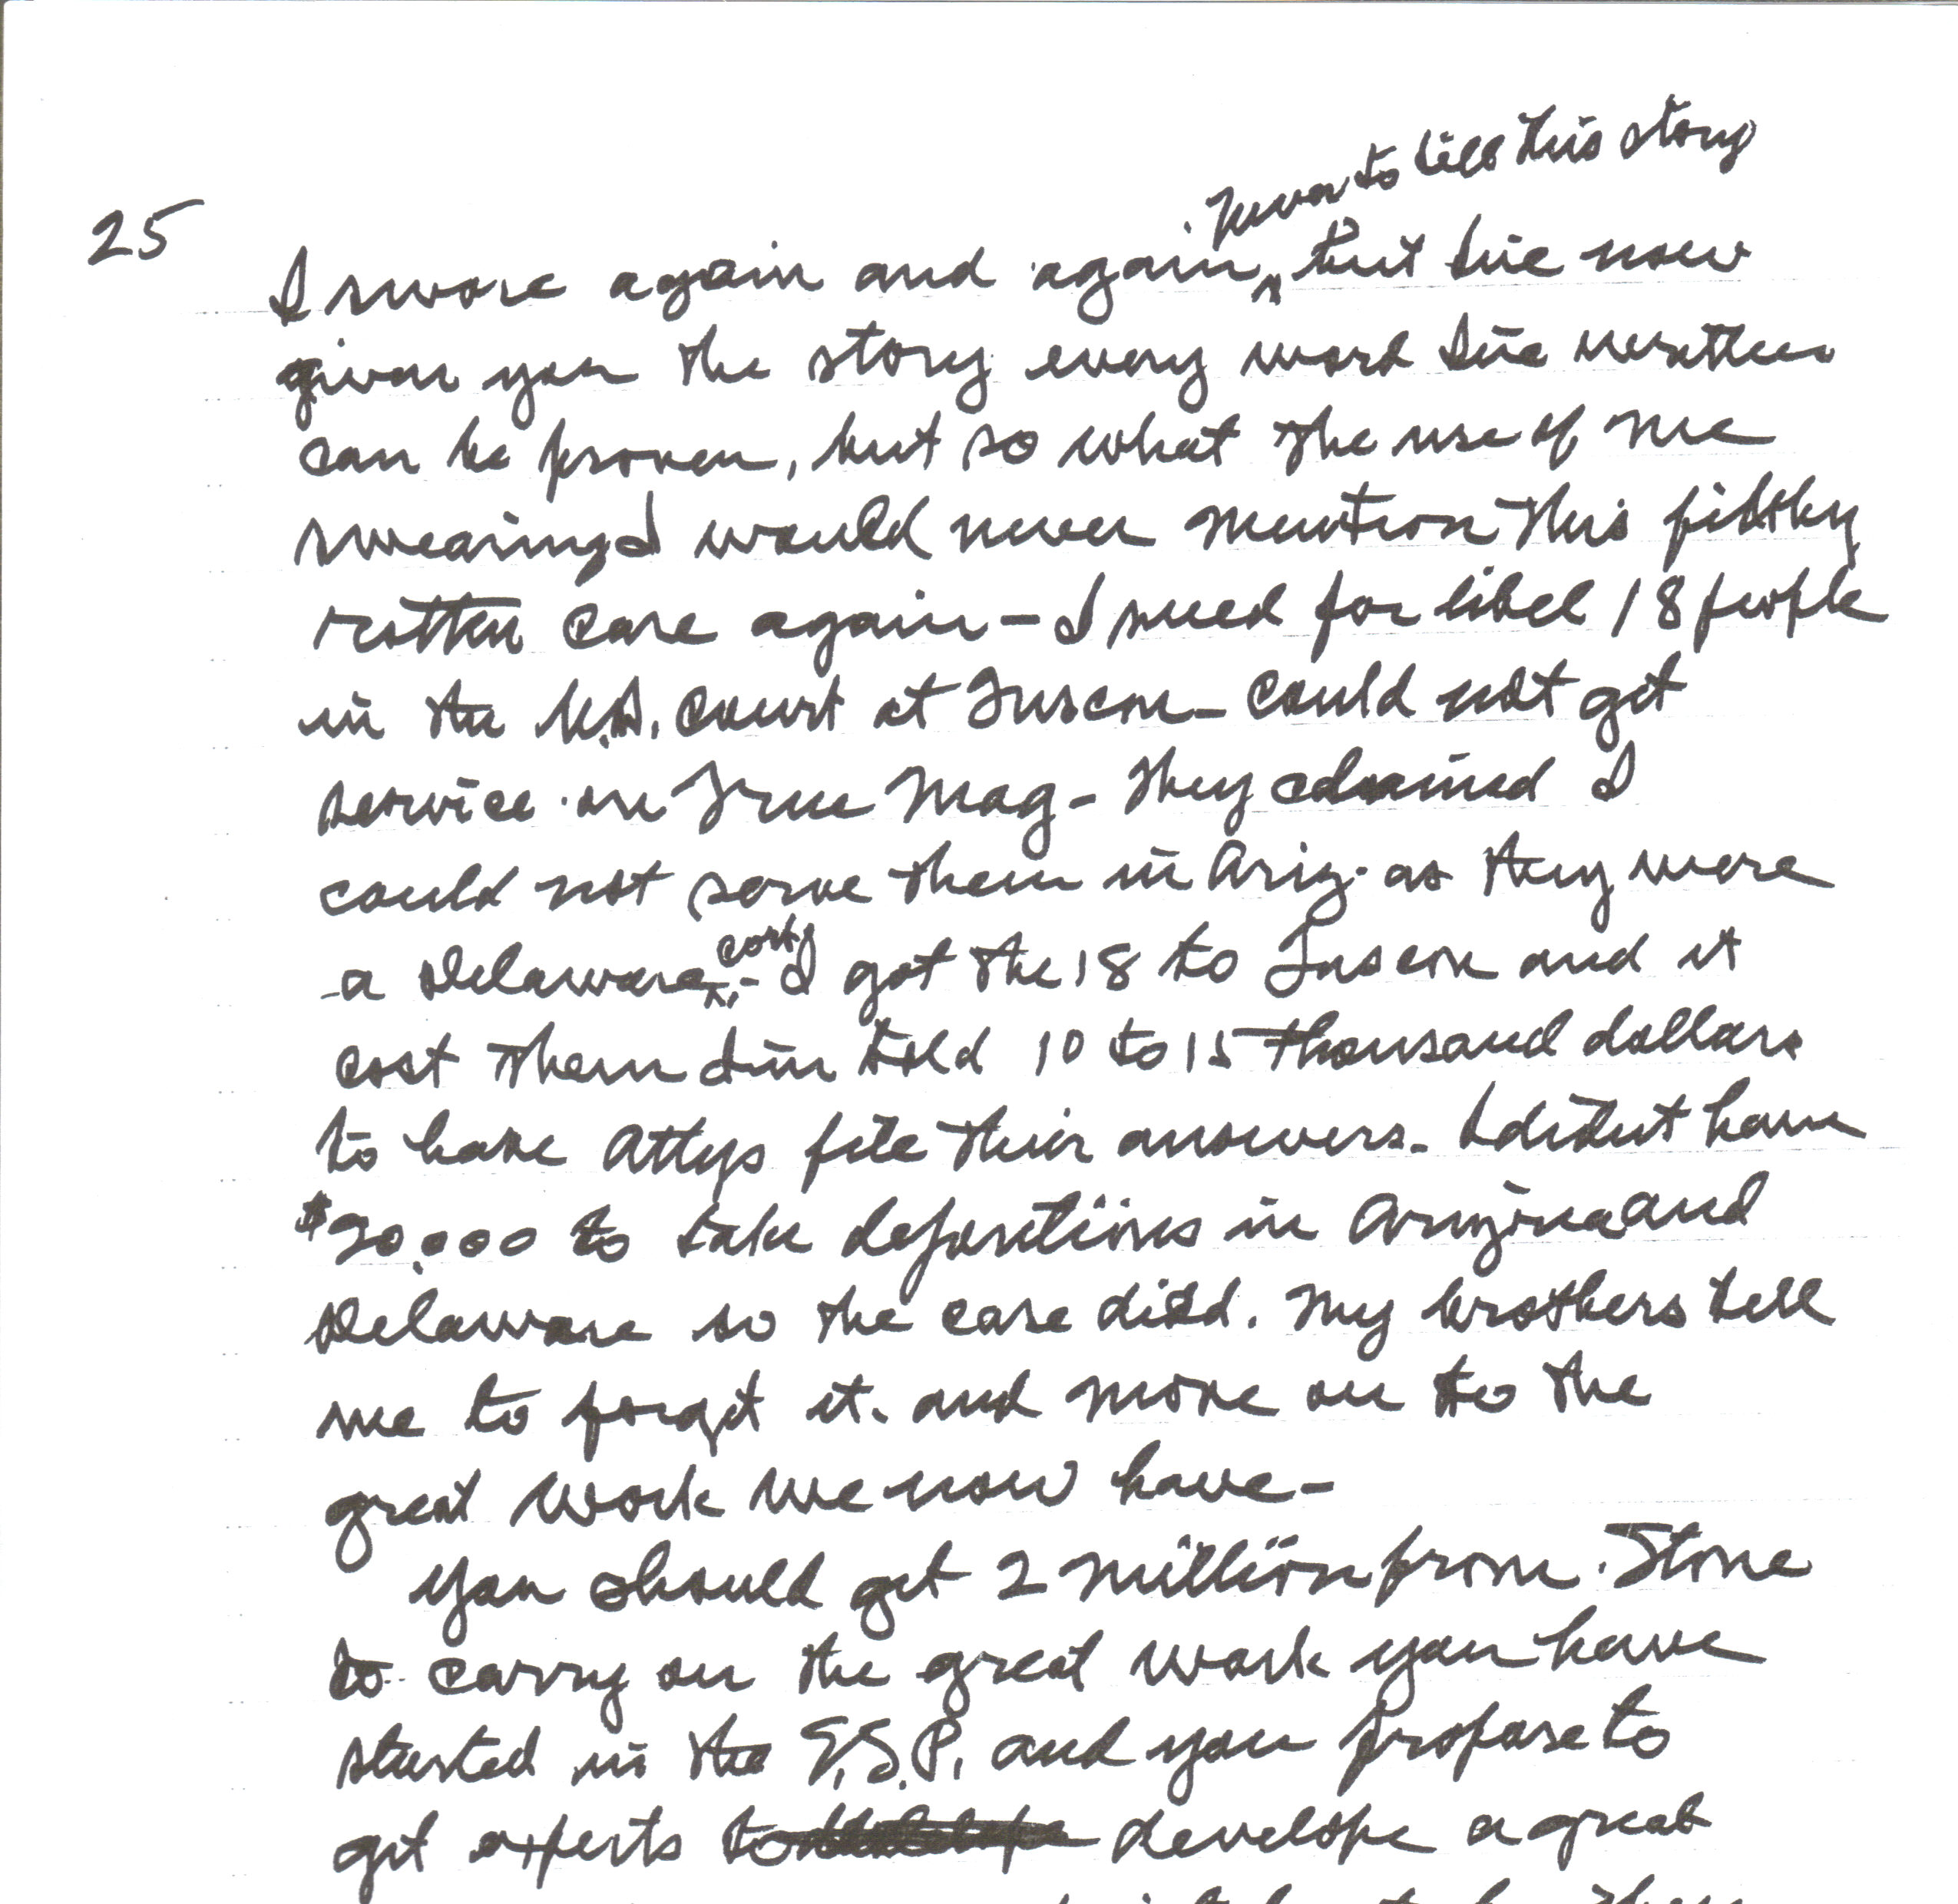 25
never to tell this story
I swore again and again ^ but I've now
given you the story every word I've written
can be proven, but so what the use of me
swearing I would never mention this filthy
rotten case again - I sued for libel 18 people
in the U.S. Court at Tuscon - could not get
service on True Mag - They claimed I
could not serve them in Ariz. as they were
a Delaware ^ corp - I got the 18 to Tuscon and it
cost them I'm told 10 to 15 thousand dollars
to have Attys file their answers. I didn't have
$20,000 to take depositions in Arizona and
Delaware so the case died. My brothers tell
me to forget it. and move on to the
great work we now have -
You should get 2 million from Stone
to carry on the great work you have
started in the E.S.P. and you propose to
get experts to develope a great